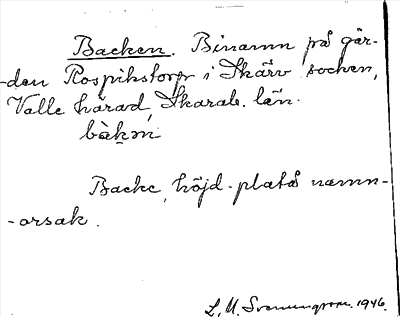 Backen. Binamn på går-
-den Rospikstorp i Skärv socken,
Valle härad, Skarab. län.
bàkøn
Backe, höjd - platå namn-
-orsak.
L. M. Svenungsson. 1946.